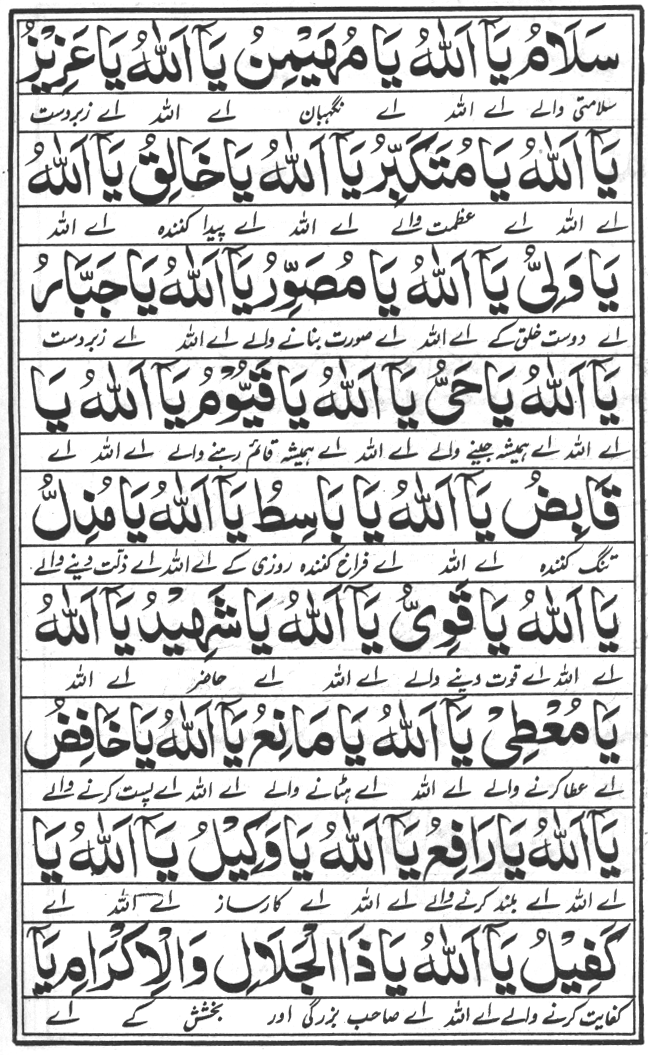 سَلَامُ يَآ اَللّٰهُ يَا مُهَيْمِنُ يَآ اَللّٰهُ يَا عَزِيْزُ
سلامتی والے اے اللہ اے نگہبان اے اللہ اے زبردست
يَآ اَللّٰهُ يَا مُتَكَبِّرُ يَآ اَللّٰهُ يَا خَالِقُ يَآ اَللّٰهُ
اے اللہ اے عظمت والے اے اللہ اے پیدا کنندہ اے اللہ
يَا وَلِىُّ يَآ اَللّٰهُ يَا مُصَوِّرُ يَآ اَللّٰهُ يَا جَبَّارُ
اے دوست خلق کے اے اللہ اے صورت بنانے والے اے اللہ اے زبردست
يَآ اَللّٰهُ يَا حَىُّ يَآ اَللّٰهُ يَا قَيُّوْمُ يَآ اَللّٰهُ يَا
اے اللہ اے ہمیشہ جینے والے اے اللہ اے ہمیشہ قائم رہنے والے اے اللہ اے
قَابِضُ يَآ اَللّٰهُ يَا بَاسِطُ يَآ اَللّٰهُ يَا مُذِلُّ
تنگ کنندہ اے اللہ اے فراخ کنندہ روزی کے اے اللہ اے ذلت دینے والے
يَآ اَللّٰهُ يَا قَوِىُّ يَآ اَللّٰهُ يَا شَهِيْدُ يَآ اَللّٰهُ
اے اللہ اے قوت دینے والے اے اللہ اے حاضر اے اللہ
يَا مُعْطِىْ يَآ اَللّٰهُ يَا مَانِعُ يَآ اَللّٰهُ يَا خَافِضُ
اے عطا کرنے والے اے اللہ اے ہٹانے والے اے اللہ اے پست کرنے والے
يَآ اَللّٰهُ يَا رَافِعُ يَآ اَللّٰهُ يَا وَكِيْلُ يَآ اَللّٰهُ يَا
اے اللہ اے بلند کرنے والے اے اللہ اے کارساز اے اللہ اے
كَفِيْلُ يَآ اَللّٰهُ يَا ذَا الْجَلَالِ وَالْاِكْرَامِ يَآ
کفایت کرنے والے اے اللہ اے صاحب بزرگی اور بخشش کے اے